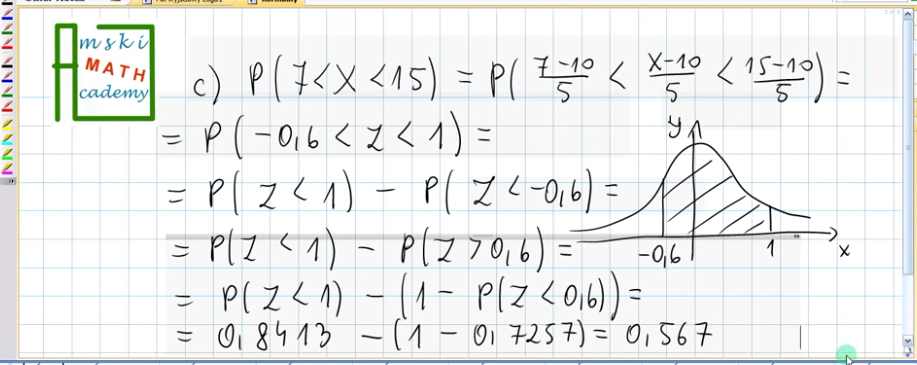 mski
MATH
cademy
c) P(7<X<15) = P(7-10/5 < X-10/5 < 15-10/5) =
= P(-0,6 < Z < 1) =
= P(Z < 1) - P(Z < -0,6) =
= P(Z < 1) - P(Z > 0,6) =
= P(Z < 1) - (1 - P(Z < 0,6)) =
= 0,8413 - (1 - 0,7257) = 0,567
y
-0,6
1
x